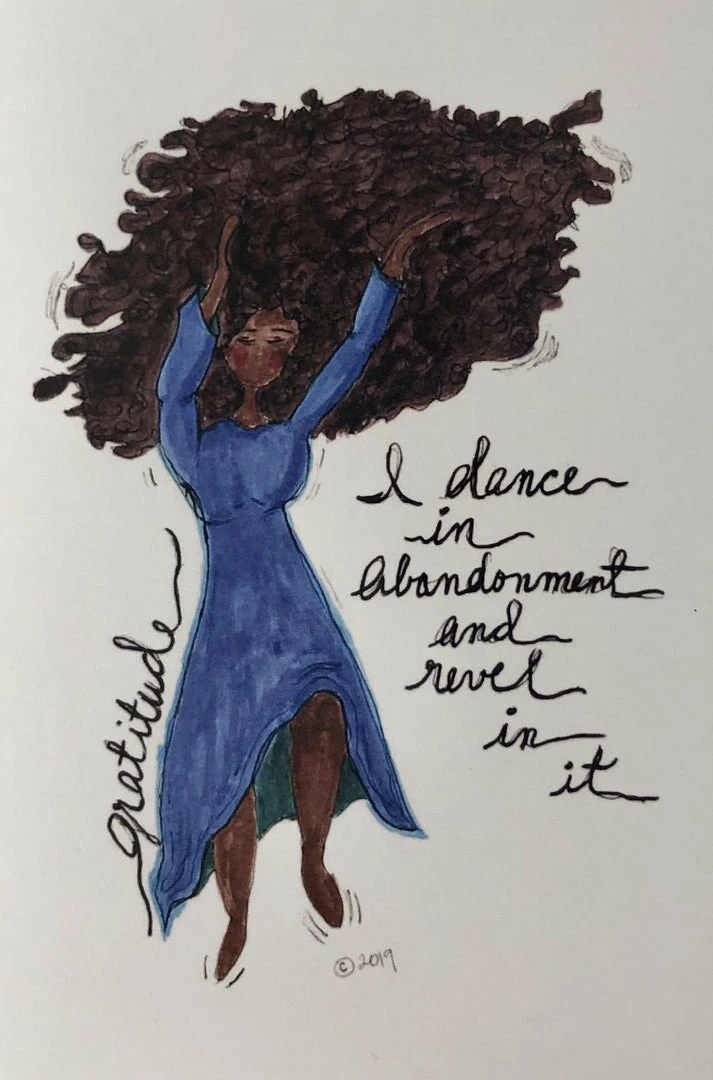 I dance
in
abandonment
and
revel
in
it
gratitude
©2019